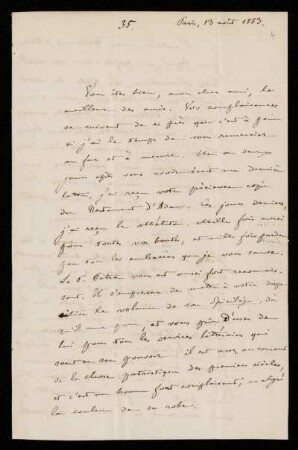 35.
Paris, 13 août 1853
Vous êtes bien, mon cher ami, le
meilleur des amis. Vos complaisances
se suivent de si près que c'est à peine
si j'ai le temps de vous remercier
au fur et à mesure. Un ou deux
jours après vous avoir écrit ma dernière
lettre, j'ai reçu votre précieuse copie
du Testament d'Adam. Ces jours derniers,
j'ai reçu le Mille fois merci
pour toute vos bontés, et mille fois pardon
pour tous les embarras que je vous cause.
Le P. Pitra vous est aussi fort reconnais-
sant. Il s'empresse de mettre à votre dispo-
sition le volume de son Spicilège, dès
qu'il aura paru, et vous prie d'user de
lui pour tous les services littéraires qui
sont en son pouvoir. Il est assez au courant
de la classe patristique des premiers siècles,
et c'est un homme fort complaisant, malgré
la couleur de sa robe.